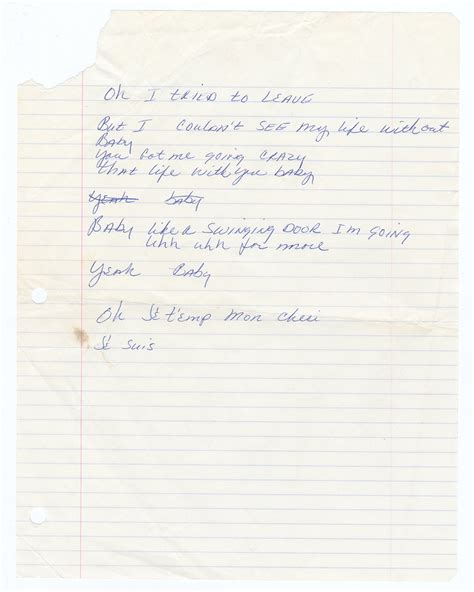 Oh I TRIED TO LEAVE
But I COULDN'T SEE my life without
Baby
You Got me going CRAZY
that life with you baby
Yeah baby
BABY like a SWINGING DOOR I'm GOING
uhh uhh for more
Yeah BABY
Oh Sé t'emp Mon Cheri
Sé Suis